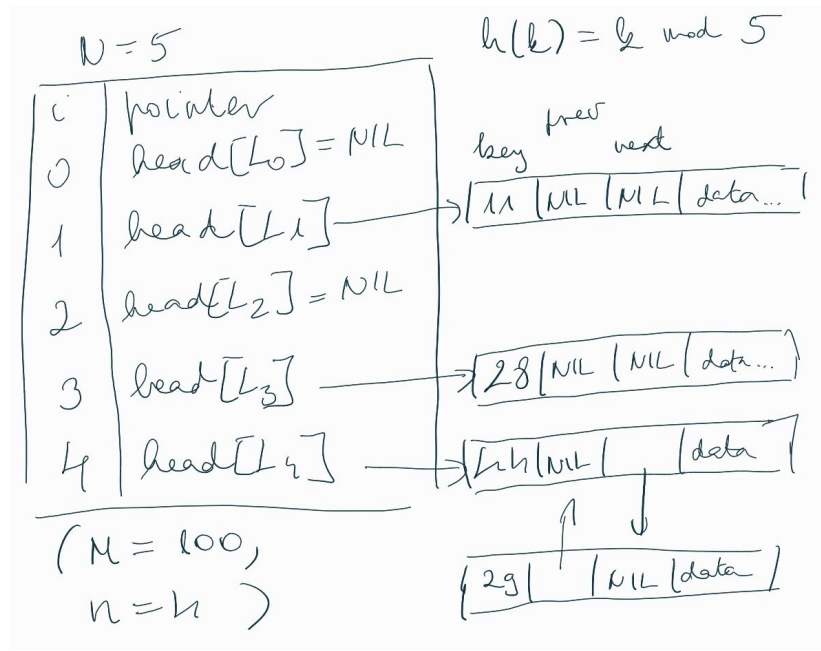 N = 5
h(k) = k mod 5
i pointer
0 head[L0] = NIL
1 head[L1]
2 head[L2] = NIL
3 head[L3]
4 head[L4]
(M = 100,
n = 4 )
key prev next
11 | NIL | NIL | data...
28 | NIL | NIL | data...
44 | NIL | | data
29 | | NIL | data